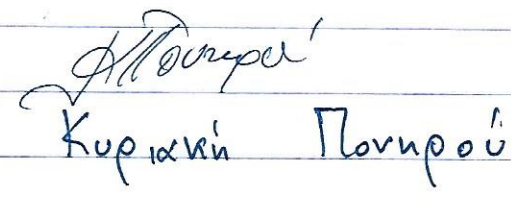 ΚΠονηρού
Κυριακή Πονηρού